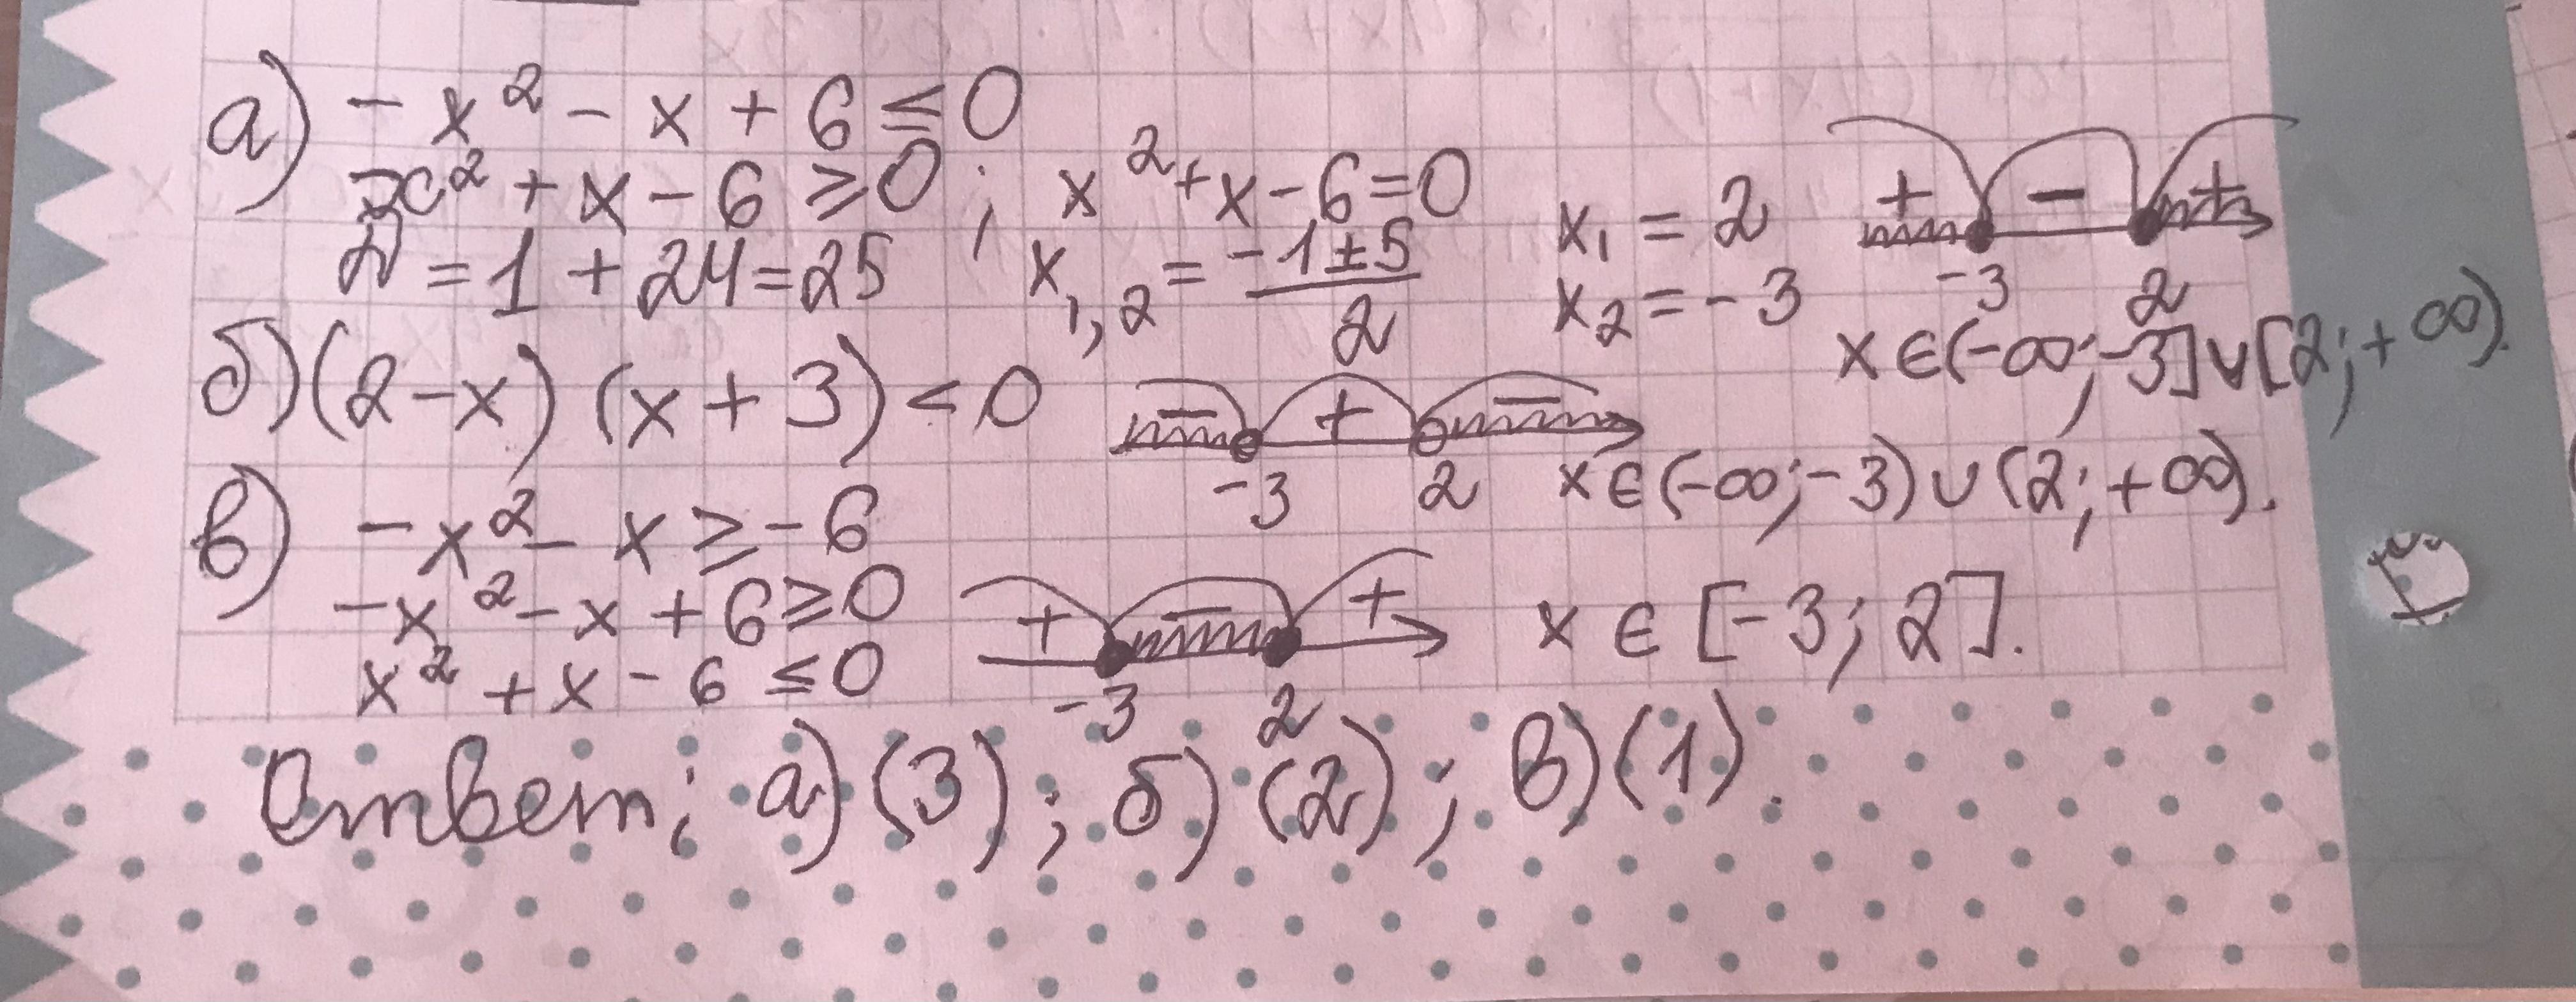 а) - x² - x + 6 ≤ 0
x² + x - 6 ≥ 0 ; x² + x - 6 = 0 x₁ = 2 + - +
D = 1 + 24 = 25 x₁,₂ = (-1 ± 5)/2 x₂ = - 3 -3 2
x ∈ (-∞; -3] ∪ [2; +∞).
б) (2 - x) (x + 3) < 0 - + -
-3 2 x ∈ (-∞; -3) ∪ (2; +∞).
в) - x² - x ≥ - 6
- x² - x + 6 ≥ 0 + - + x ∈ [-3; 2].
x² + x - 6 ≤ 0 -3 2
Ответ: а) (3) ; б) (2) ; в) (1).